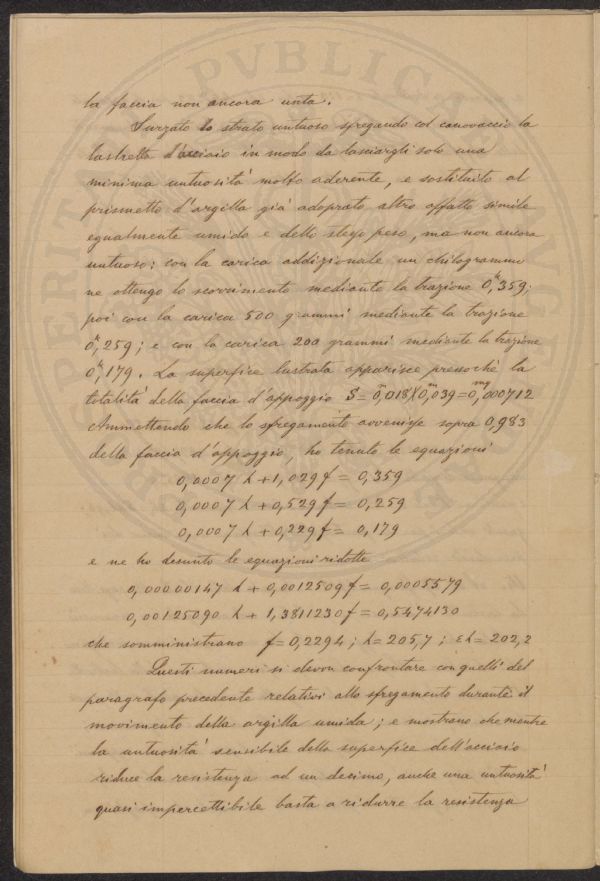 la faccia non ancora unta.
Surgato lo strato untuoso sfregando col canovaccio la
lastretta d'acciaio in modo da lasciargli solo una
minima untuosità molto aderente, e sostituito al
prismetto d'argilla già adoprato altro affatto simile
egualmente umido e dello stesso peso, ma non ancora
untuoso: con la carica addizionale un chilogrammo
ne ottengo lo scorrimento mediante la trazione 0,ᵏ359;
poi con la carica 500 grammi mediante la trazione
0,ᵏ259; e con la carica 200 grammi mediante la trazione
0,ᵏ179. La superfice lustrata apparisce presochè la
totalità della faccia d'appoggio S = 0,ᵐ018 X 0,ᵐ039 = 0,ᵐq000712
Ammettendo che lo sfregamento avvenisse sopra 0,983
della faccia d'appoggio, ho tenuto le equazioni
0,0007 λ + 1,029 f = 0,359
0,0007 λ + 0,529 f = 0,259
0,0007 λ + 0,229 f = 0,179
e ne ho desunto le equazioni ridotte
0,00000147 λ + 0,0012509 f = 0,0005579
0,00125090 λ + 1,3811230 f = 0,5474130
che somministrano f = 0,2294; λ = 205,7; ελ = 202,2
Questi numeri si devon confrontare con quelli del
paragrafo precedente relativi allo sfregamento durante il
movimento della argilla umida; e mostrano che mentre
la untuosità sensibile della superfice dell'acciaio
riduce la resistenza ad un decimo, anche una untuosità
quasi impercettibile basta a ridurre la resistenza
PVBLICA